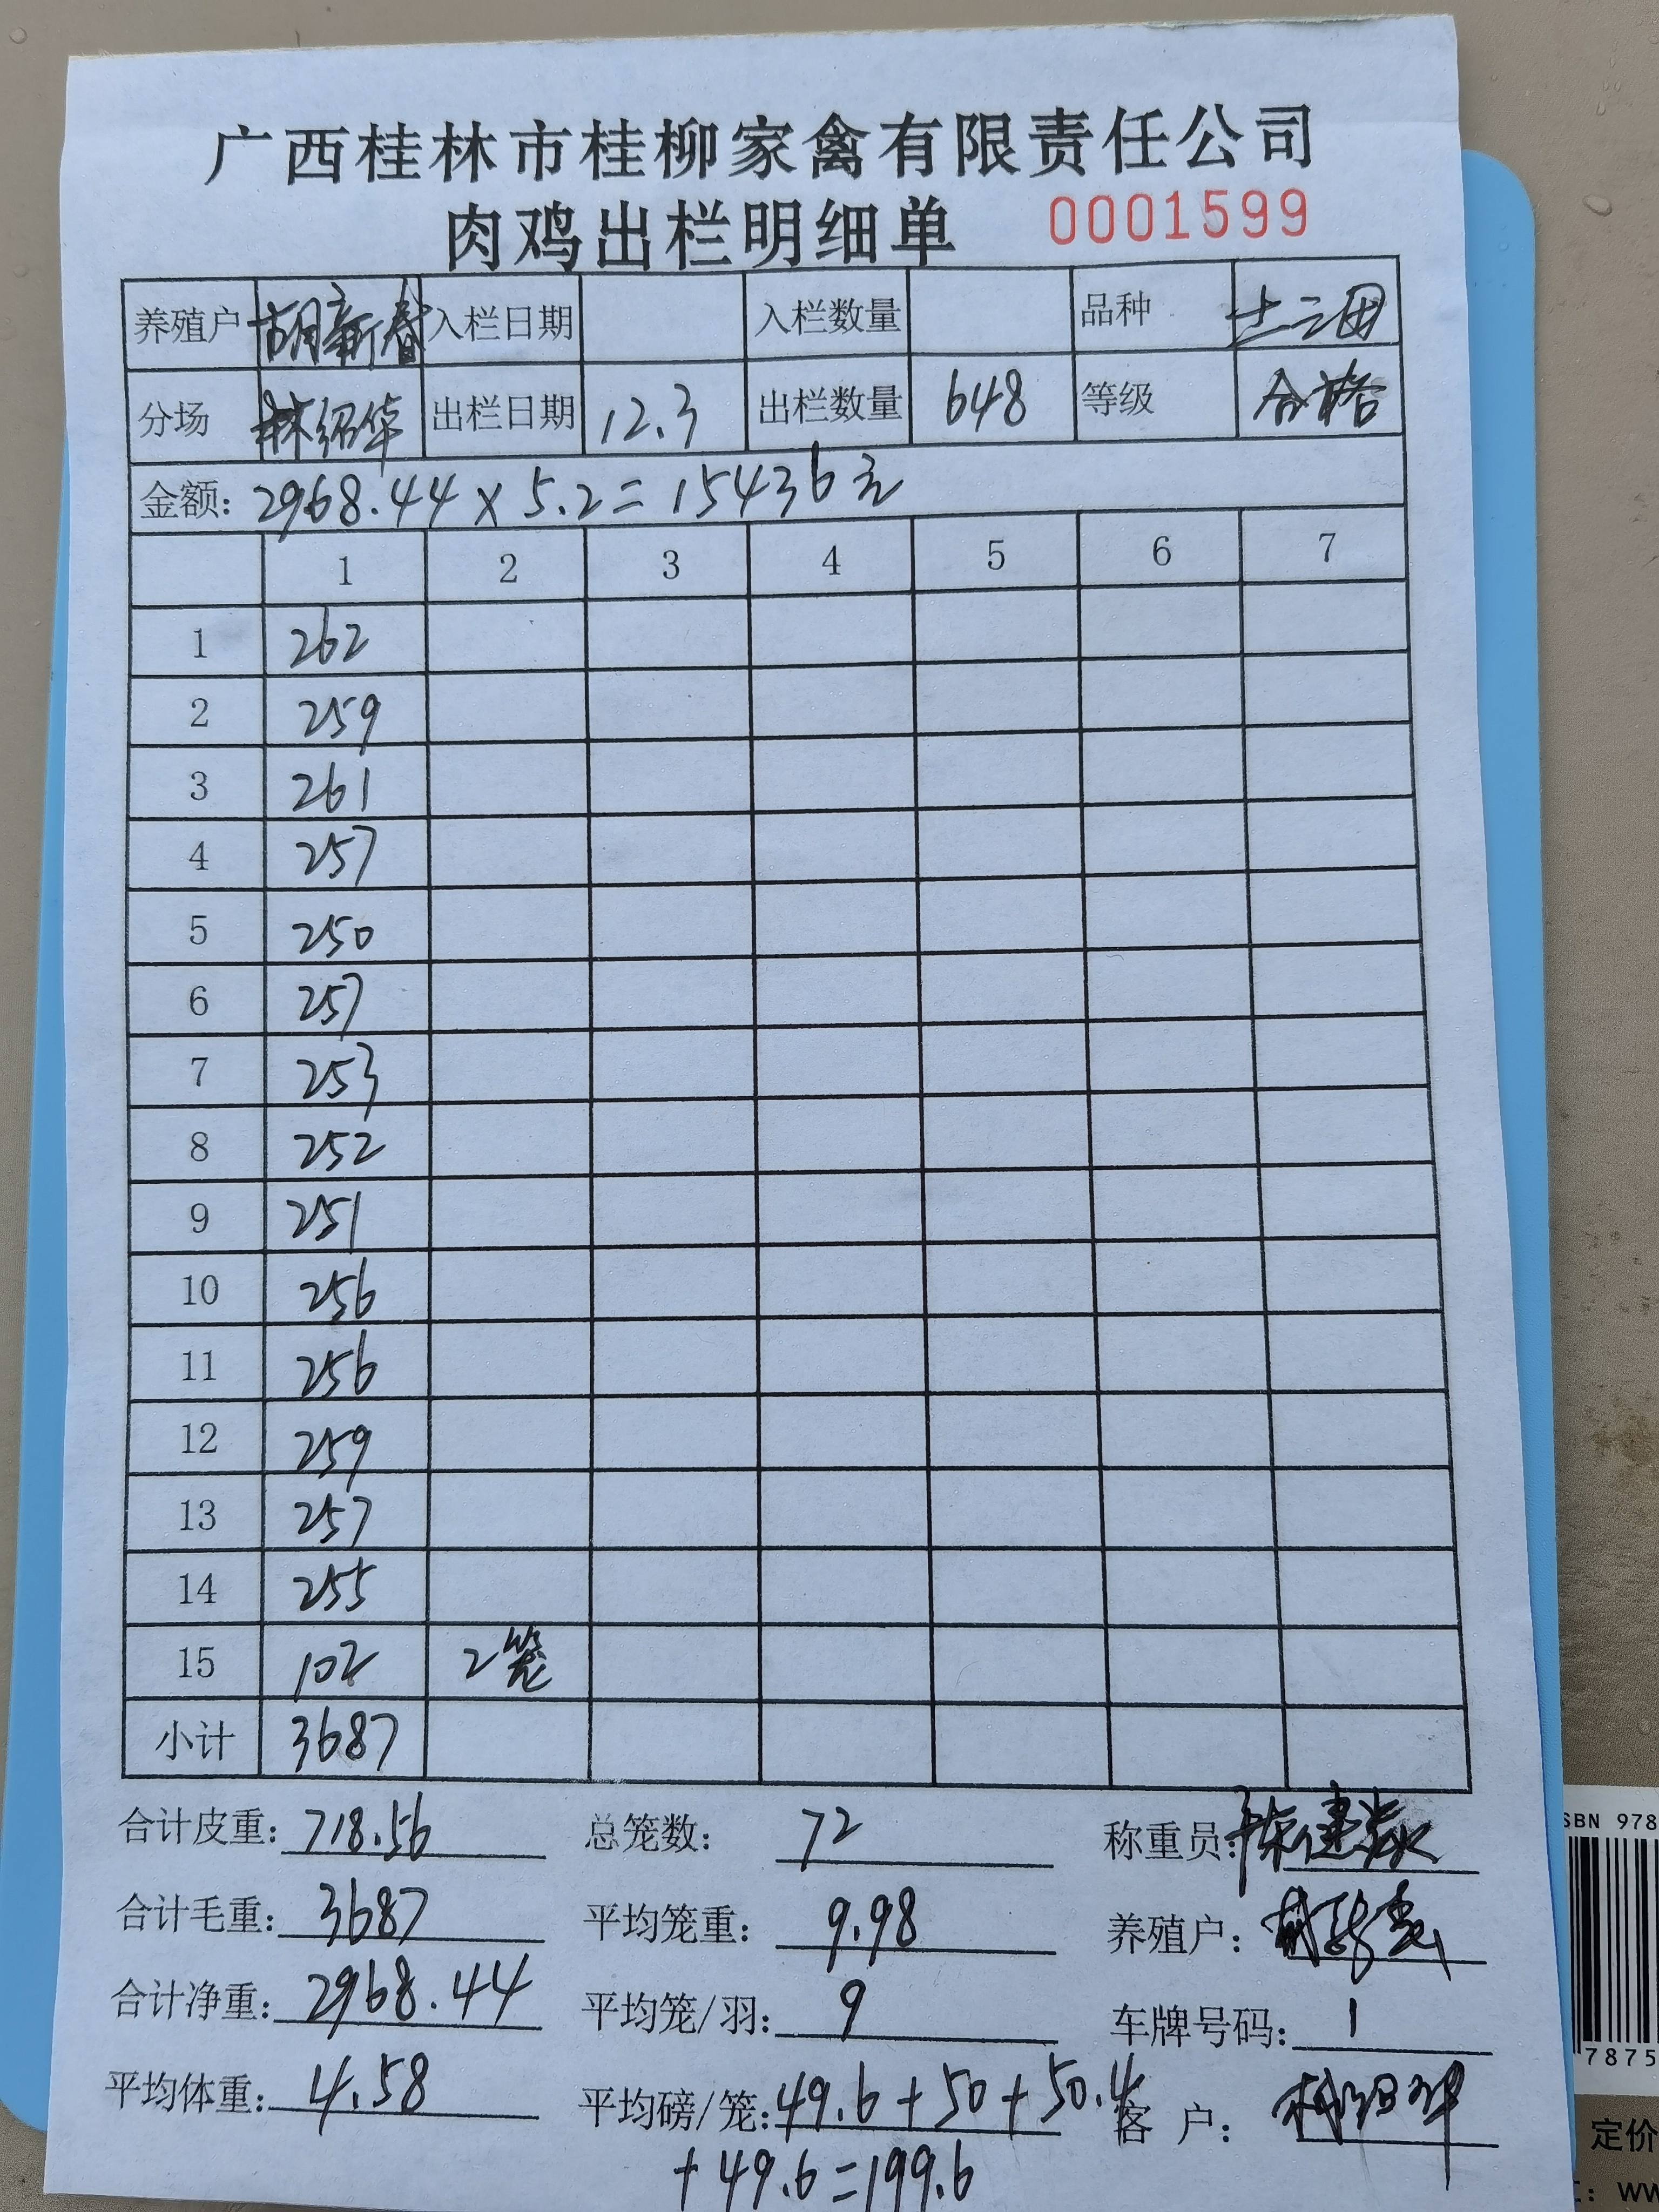 广西桂林市桂柳家禽有限责任公司
肉鸡出栏明细单 0001599
养殖户 胡新春 入栏日期 入栏数量 品种 土二
分场 林绍华 出栏日期 12.3 出栏数量 648 等级 合格
金额: 2968.44 x 5.2 = 15436元
1 2 3 4 5 6 7
1 262
2 259
3 261
4 257
5 250
6 257
7 253
8 252
9 251
10 256
11 256
12 259
13 257
14 255
15 102 2笼
小计 3687
合计皮重: 718.56 总笼数: 72 称重员:
合计毛重: 3687 平均笼重: 9.98 养殖户:
合计净重: 2968.44 平均笼/羽: 9 车牌号码: 1
平均体重: 4.58 平均磅/笼: 49.6 + 50 + 50.4 客 户: 林绍华
+ 49.6 = 199.6
SBN 978
7875
定价
: ww